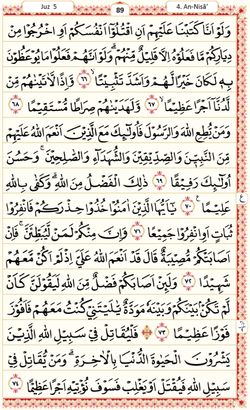 Juz 5
89
4. An-Nisâ'
وَلَوْ اَنَّا كَتَبْنَا عَلَيْهِمْ اَنِ اقْتُلُوْٓا اَنْفُسَكُمْ اَوِ اخْرُجُوْا مِنْ
دِيَارِكُمْ مَّا فَعَلُوْهُ اِلَّا قَلِيْلٌ مِّنْهُمْ ۗ وَلَوْ اَنَّهُمْ فَعَلُوْا مَا يُوْعَظُوْنَ
بِهٖ لَكَانَ خَيْرًا لَّهُمْ وَاَشَدَّ تَثْبِيْتًا ۙ ٦٦ وَّاِذًا لَّاٰتَيْنٰهُمْ مِّنْ
لَّدُنَّآ اَجْرًا عَظِيْمًا ۙ ٦٧ وَّلَهَدَيْنٰهُمْ صِرَاطًا مُّسْتَقِيْمًا ٦٨
وَمَنْ يُّطِعِ اللّٰهَ وَالرَّسُوْلَ فَاُولٰۤىِٕكَ مَعَ الَّذِيْنَ اَنْعَمَ اللّٰهُ عَلَيْهِمْ
مِّنَ النَّبِيّٖنَ وَالصِّدِّيْقِيْنَ وَالشُّهَدَاۤءِ وَالصّٰلِحِيْنَ ۚ وَحَسُنَ
اُولٰۤىِٕكَ رَفِيْقًا ۗ ٦٩ ذٰلِكَ الْفَضْلُ مِنَ اللّٰهِ ۗ وَكَفٰى بِاللّٰهِ
عَلِيْمًا ٧٠ يٰٓاَيُّهَا الَّذِيْنَ اٰمَنُوْا خُذُوْا حِذْرَكُمْ فَانْفِرُوْا
ثُبَاتٍ اَوِ انْفِرُوْا جَمِيْعًا ٧١ وَاِنَّ مِنْكُمْ لَمَنْ لَّيُبَطِّئَنَّ ۚ فَاِنْ
اَصَابَتْكُمْ مُّصِيْبَةٌ قَالَ قَدْ اَنْعَمَ اللّٰهُ عَلَيَّ اِذْ لَمْ اَكُنْ مَّعَهُمْ
شَهِيْدًا ٧٢ وَلَىِٕنْ اَصَابَكُمْ فَضْلٌ مِّنَ اللّٰهِ لَيَقُوْلَنَّ كَاَنْ
لَّمْ تَكُنْۢ بَيْنَكُمْ وَبَيْنَهٗ مَوَدَّةٌ يّٰلَيْتَنِيْ كُنْتُ مَعَهُمْ فَاَفُوْزَ
فَوْزًا عَظِيْمًا ٧٣ فَلْيُقَاتِلْ فِيْ سَبِيْلِ اللّٰهِ الَّذِيْنَ
يَشْرُوْنَ الْحَيٰوةَ الدُّنْيَا بِالْاٰخِرَةِ ۗ وَمَنْ يُّقَاتِلْ فِيْ
سَبِيْلِ اللّٰهِ فَيُقْتَلْ اَوْ يَغْلِبْ فَسَوْفَ نُؤْتِيْهِ اَجْرًا عَظِيْمًا ٧٤